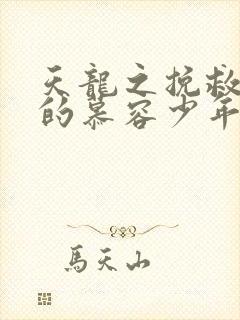 天龍之挽救
的慕容少年
馬天山